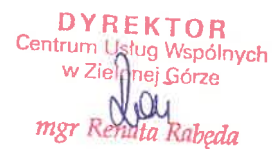 DYREKTOR
Centrum Usług Wspólnych
w Zielonej Górze
mgr Renata Rabęda